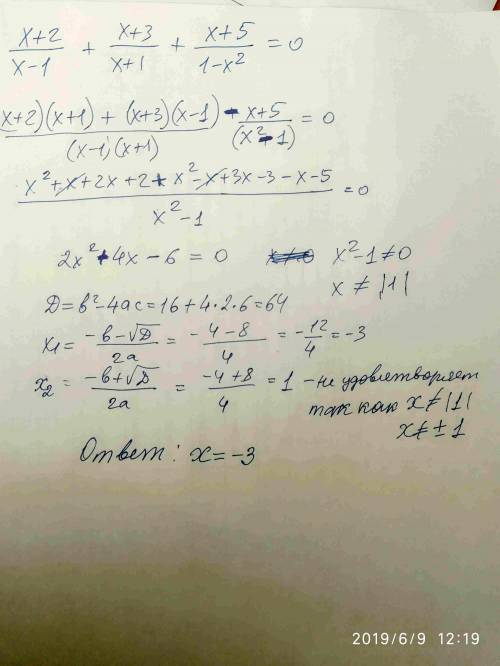 x+2/x-1 + x+3/x+1 + x+5/1-x² = 0
(x+2)(x+1) + (x+3)(x-1)/(x-1)(x+1) - x+5/(x²-1) = 0
x²+x+2x+2+x²-x+3x-3-x-5/x²-1 = 0
2x²+4x-6 = 0 x²-1≠0
x ≠ |1|
D = b²-4ac = 16+4·2·6 = 64
x₁ = -b-√D/2a = -4-8/4 = -12/4 = -3
x₂ = -b+√D/2a = -4+8/4 = 1 - не удовлетворяет
так как x≠|1|
x≠±1
Ответ: x = -3
2019/6/9 12:19